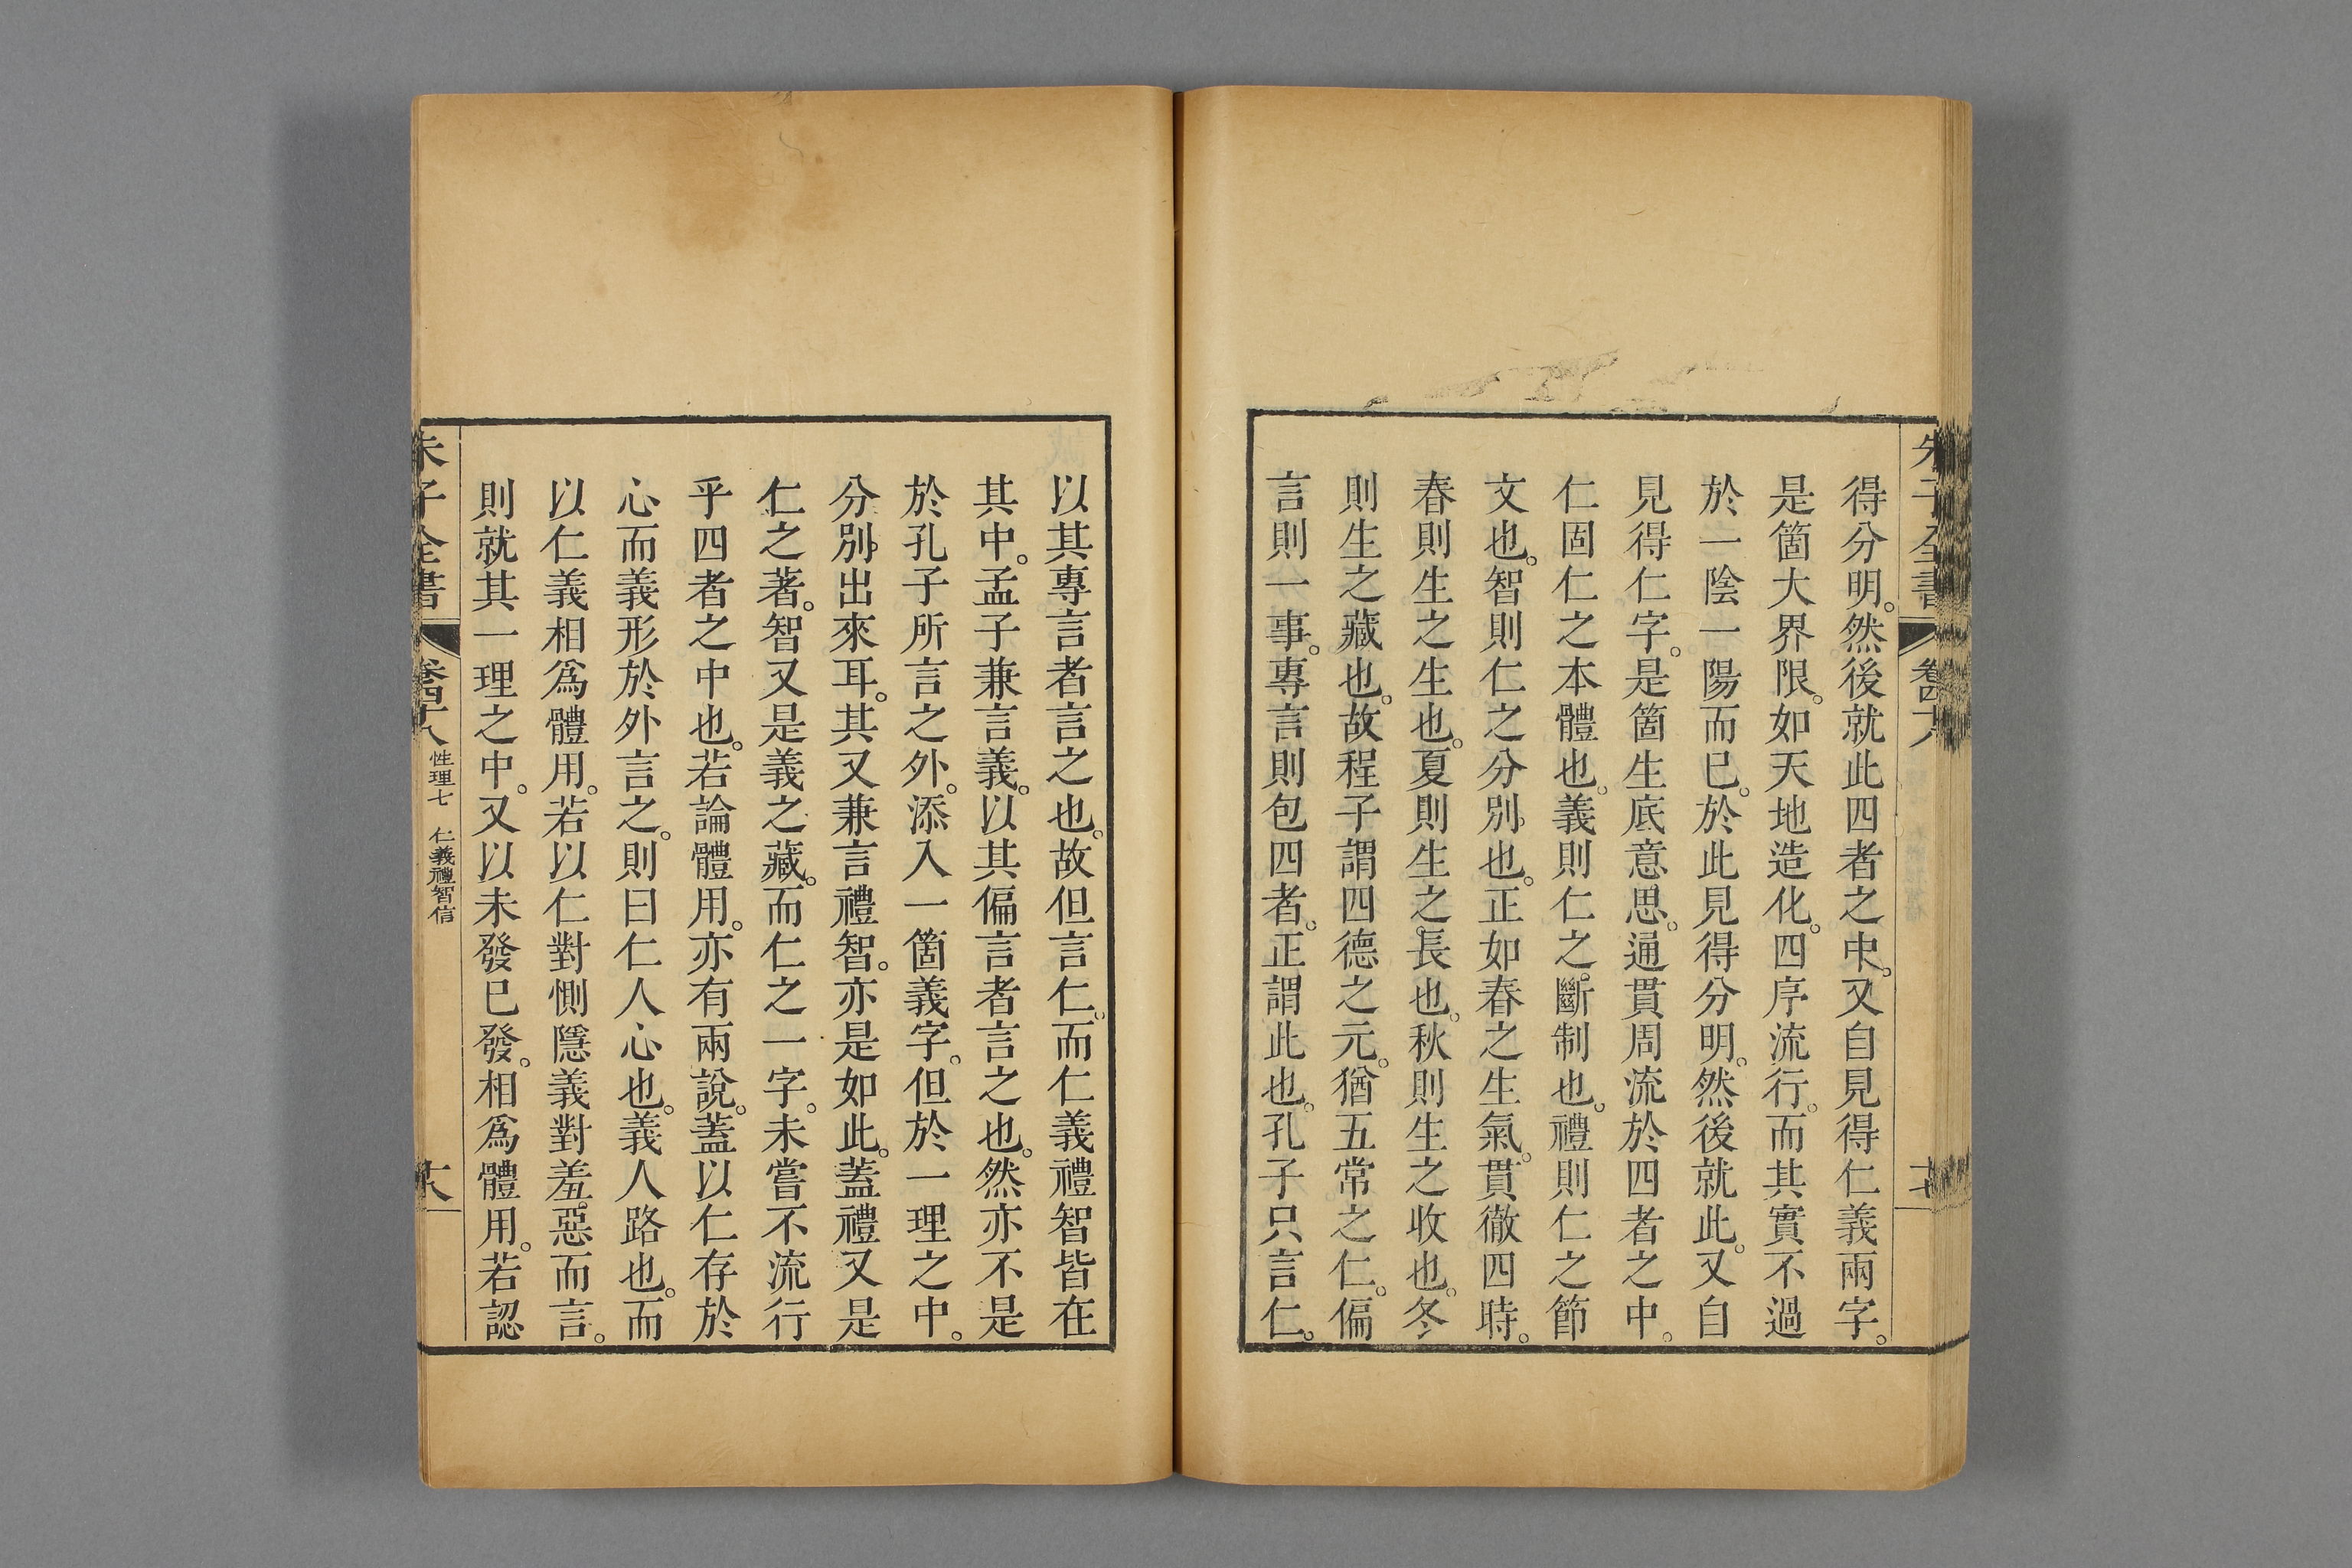 朱子全書 卷四十八
十七
得分明。然後就此四者之中。又自見得仁義兩字。
是箇大界限。如天地造化。四序流行。而其實不過
於一陰一陽而已。於此見得分明。然後就此。又自
見得仁字。是箇生底意思。通貫周流於四者之中。
仁固仁之本體也。義則仁之斷制也。禮則仁之節
文也。智則仁之分別也。正如春之生氣。貫徹四時。
春則生之生也。夏則生之長也。秋則生之收也。冬
則生之藏也。故程子謂四德之元。猶五常之仁。偏
言則一事。專言則包四者。正謂此也。孔子只言仁。
以其專言者言之也。故但言仁。而仁義禮智皆在
其中。孟子兼言義。以其偏言者言之也。然亦不是
於孔子所言之外。添入一箇義字。但於一理之中。
分別出來耳。其又兼言禮智。亦是如此。蓋禮又是
仁之著。智又是義之藏。而仁之一字。未嘗不流行
乎四者之中也。若論體用。亦有兩說。蓋以仁存於
心而義形於外言之。則曰仁人心也。義人路也。而
以仁義相爲體用。若以仁對惻隱義對羞惡而言。
則就其一理之中。又以未發已發。相爲體用。若認
朱子全書 卷四十八 性理七 仁義禮智信
十八